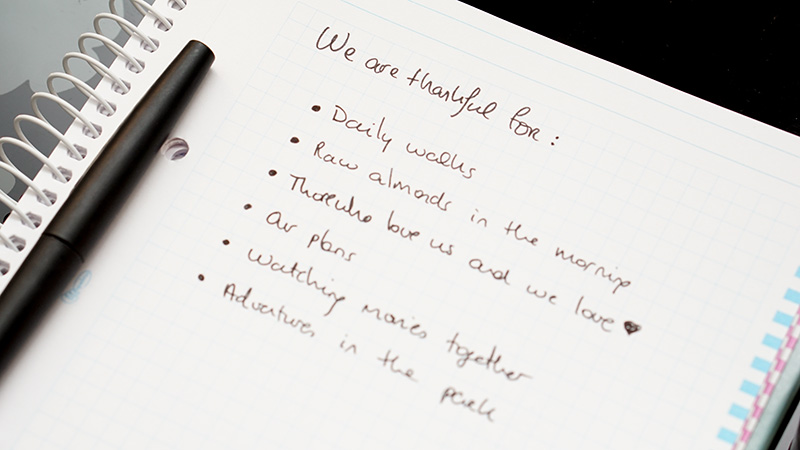 We are thankful for:
• Daily walks
• Raw almonds in the morning
• Those who love us and we love ♥
• Our plans
• Watching movies together
• Adventures in the park